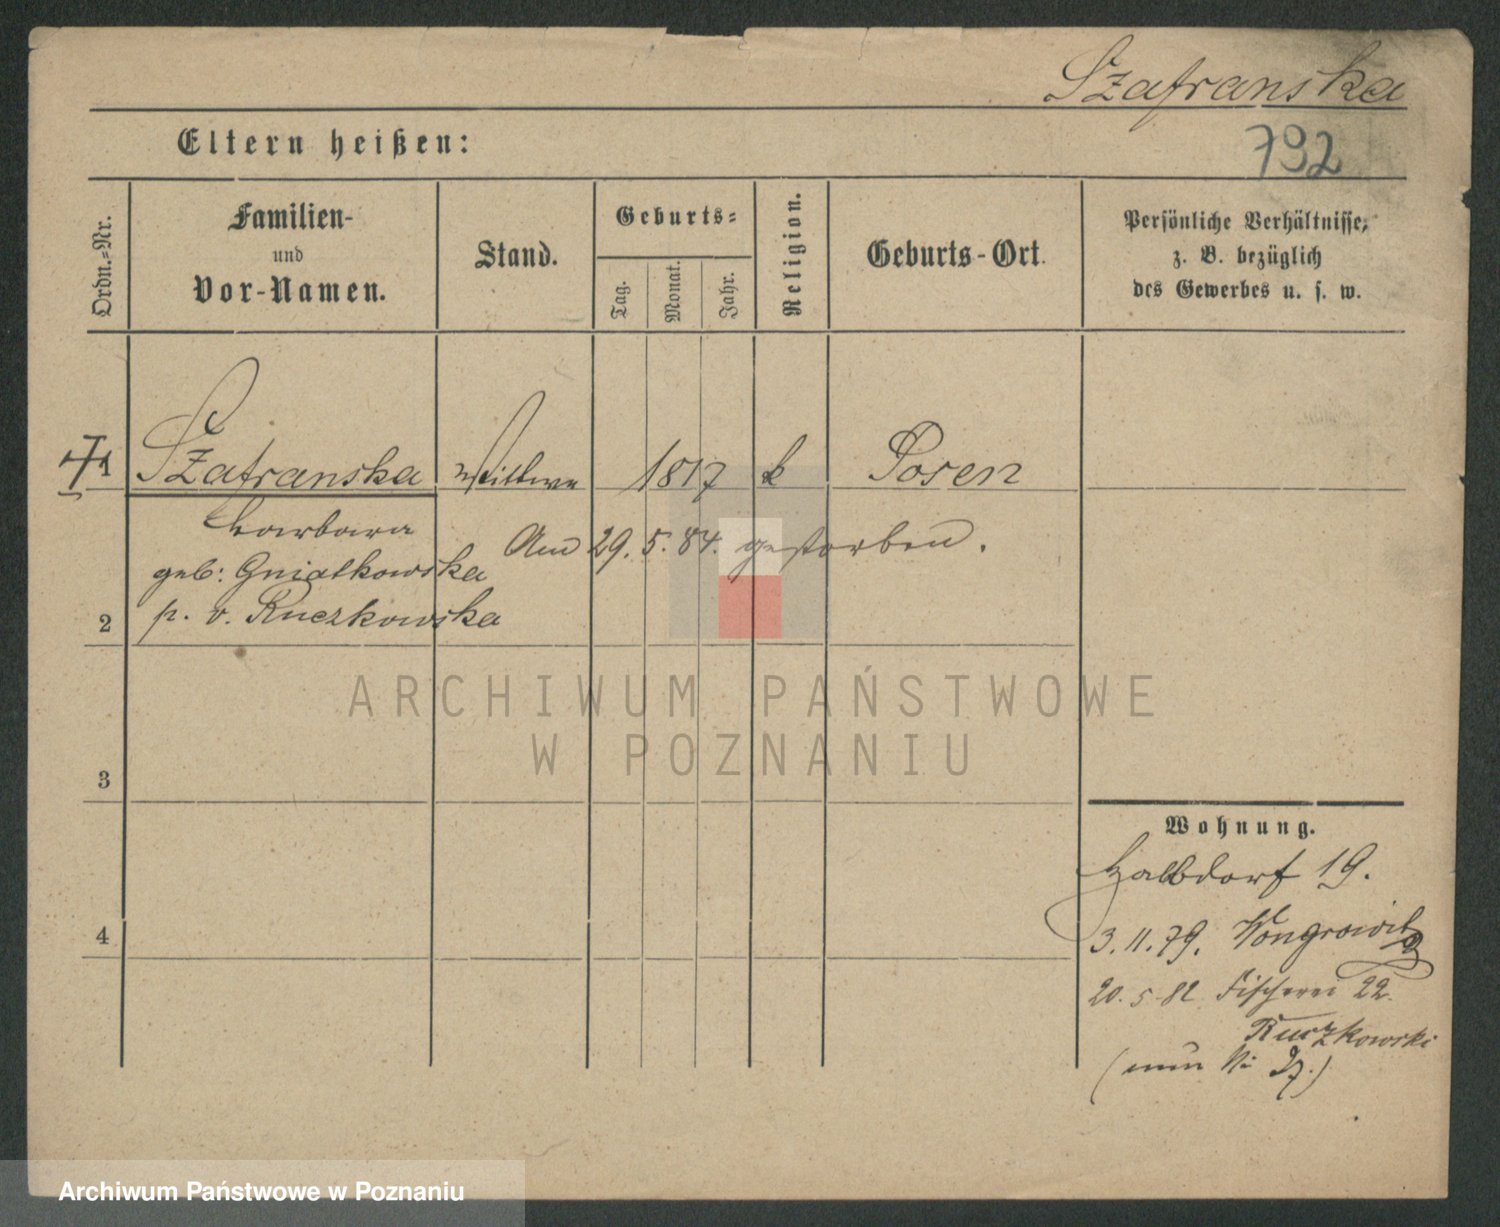 Szafranska
Eltern heißen:
792
Ordn.-Nr.
Familien-
und
Vor-Namen.
Stand.
Geburts-
Tag.
Monat.
Jahr.
Religion.
Geburts-Ort.
Persönliche Verhältnisse,
z. B. bezüglich
des Gewerbes u. s. w.
1 Szafranska Wittwe 1817 k Posen
Barbara
Am 29. 5. 84. gestorben.
geb: Gniatkowska
2 p. v. Ruczkowska
ARCHIWUM PAŃSTWOWE
W POZNANIU
3
Wohnung.
Halbdorf 19.
4
3. 11. 79. Wongrowitz
20. 5. 82 Fischerei 22.
Ruczkowski
(nun
Archiwum Państwowe w Poznaniu